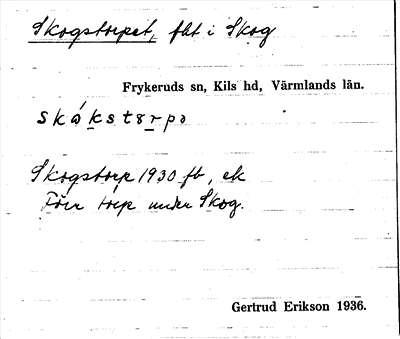 Skogstorpet, fht i Skog
Frykeruds sn, Kils hd, Värmlands län.
skákstɤrpə
Skogstorp 1930 fb, ek
Förr torp under Skog.
Gertrud Erikson 1936.